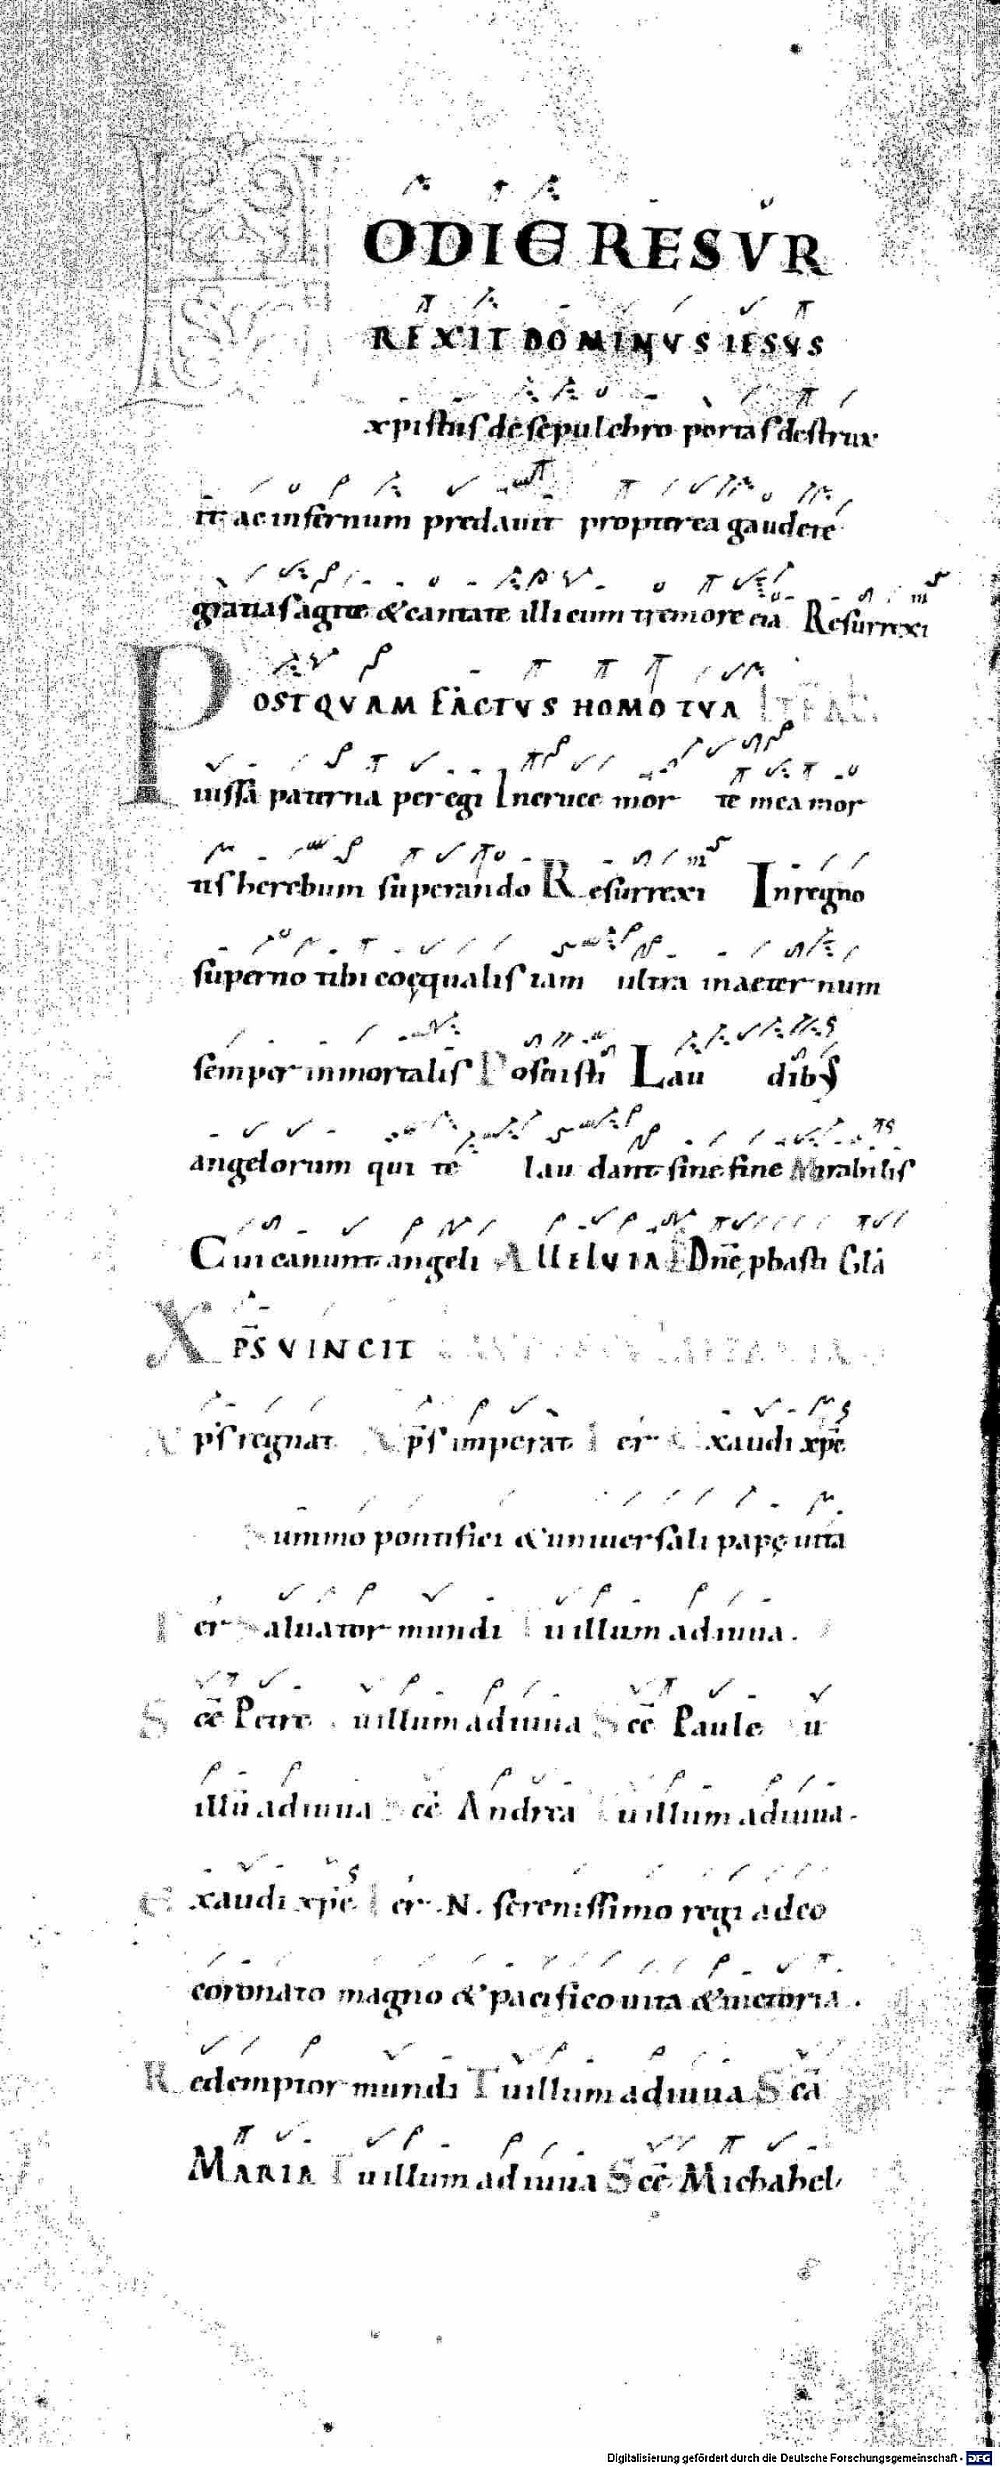 HODIE RESVR
REXIT DOMINVS IESVS
xpistus de sepulchro portas destrux
it ac infernum predauit propterea gaudete
gratias agite & cantate illi cum tremore eia Resurrexi
POST QVAM FACTVS HOMO TVA ITEM
iussa paterna peregi In cruce mor te mea mor
tis herebum superando Resurrexi In regno
superno tibi coęqualis iam ultra in aeternum
semper inmortalis Posuisti Lau dib;
angelorum qui te lau dant sine fine Mirabilis
Cui canunt angeli ALLELVIA Dnę phasti Glā
XPS VINCIT
Xps regnat Xps imperat Iter Exaudi xpe
Summo pontifici & uniuersali papę uita
Iter Saluator mundi Tu illum adiuua.
Sce Petre Tu illum adiuua Sce Paule Tu
illū adiuua Sce Andrea Tu illum adiuua.
Exaudi xpe Iter .N. serenissimo regi a deo
coronato magno & pacifico uita & uictoria.
Redemptor mundi Tu illum adiuua Sca
MARIA Tu illum adiuua Sce Michahel
Digitalisierung gefördert durch die Deutsche Forschungsgemeinschaft - DFG